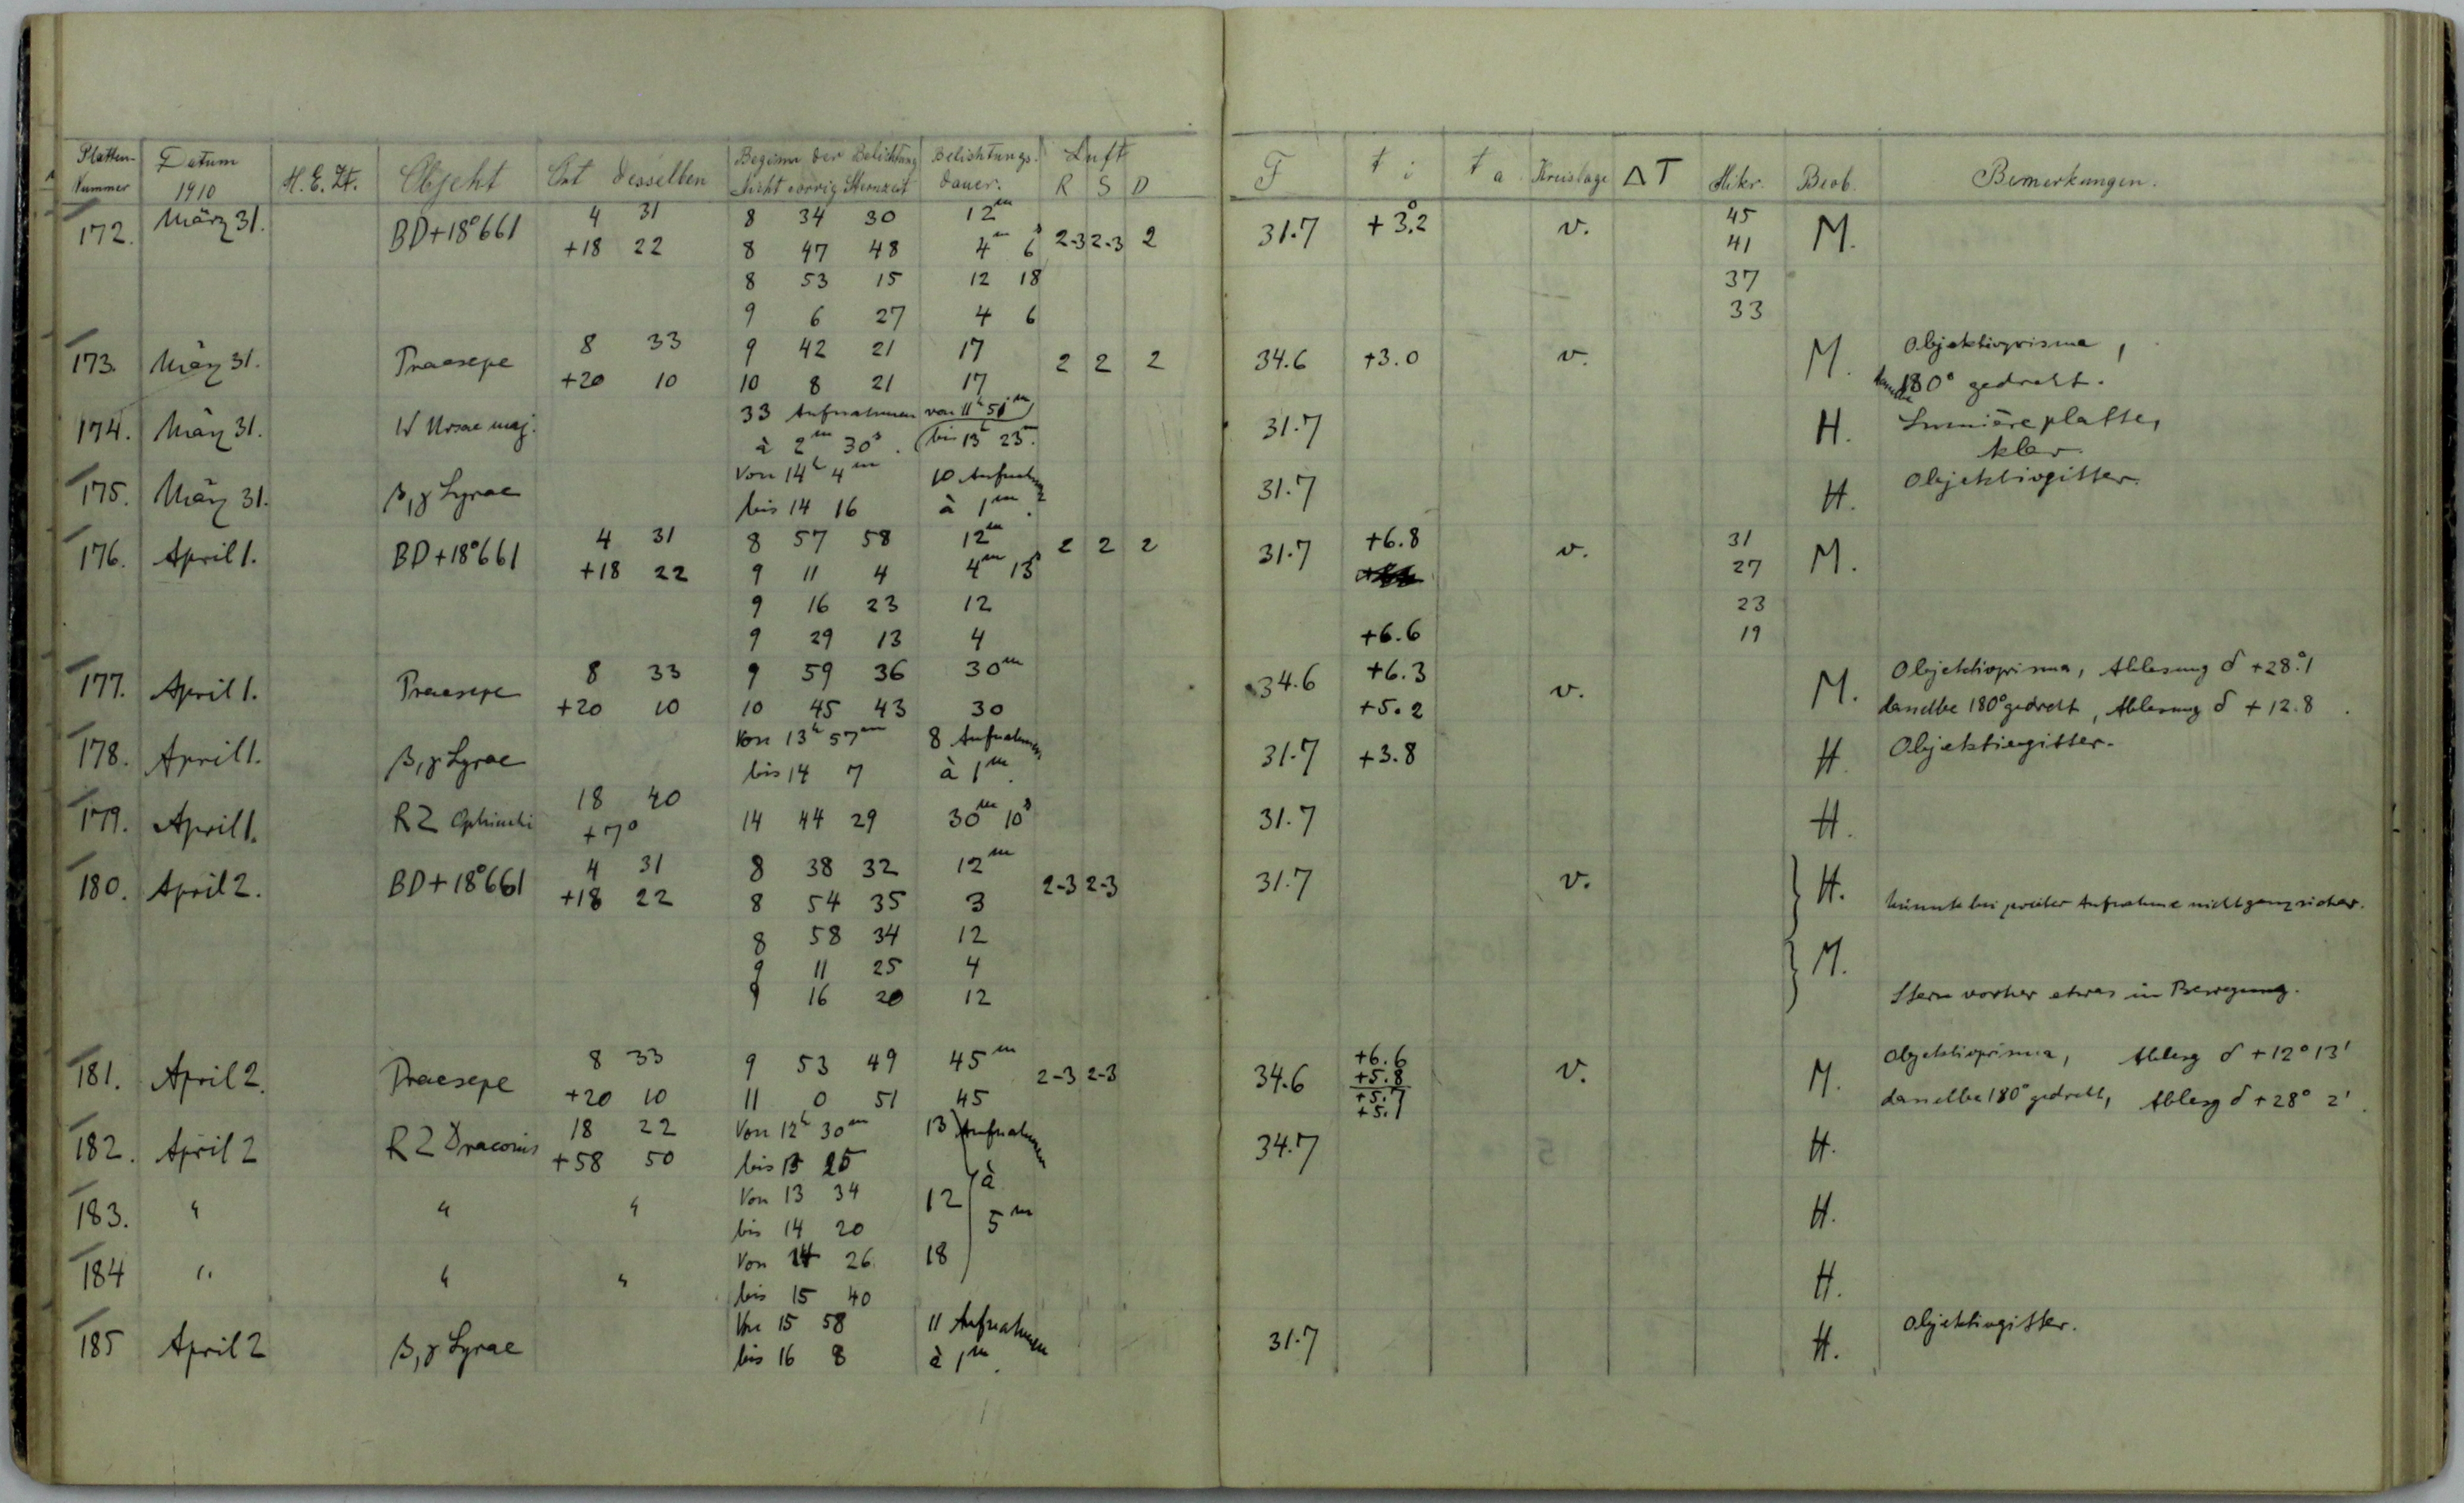 Platten- Datum Beginn der Belichtung Belichtungs- Luft
Nummer 1910 M.E.Zt. Objekt Ort desselben Nicht corrig Sternzeit dauer. R S D F t i t a Kreislage ΔT Mikr. Beob. Bemerkungen.
172. März 31. BD+18°661 4 31 8 34 30 12m 31.7 +3°.2 v. 45 M.
+18 22 8 47 48 4m 6s 2-3 2-3 2 41
8 53 15 12 18 37
9 6 27 4 6 33
173. März 31. Praesepe 8 33 9 42 21 17 2 2 2 34.6 +3.0 v. M. Objektivprisma,
+20 10 10 8 21 17 180° gedreht.
174. März 31. W Ursae maj. 33 Aufnahmen von 11h 51m 31.7 H. Lumière platte,
à 2m 30s. bis 13h 23m. klar.
175. März 31. β, γ Lyrae Von 14h 4m 10 Aufnahmen 31.7 H. Objektivgitter.
bis 14 16 à 1m.
176. April 1. BD+18°661 4 31 8 57 58 12m 2 2 2 31.7 +6.8 v. 31 M.
+18 22 9 11 4 4m 13s 27
9 16 23 12 23
9 29 13 4 +6.6 19
177. April 1. Praesepe 8 33 9 59 36 30m 34.6 +6.3 v. M. Objektivprisma, Ablesung δ +28°.1
+20 10 10 45 43 30 +5.2 dasselbe 180° gedreht, Ablesung δ +12.8.
178. April 1. β, γ Lyrae Von 13h 57m 8 Aufnahmen 31.7 +3.8 H. Objektivgitter.
bis 14 7 à 1m.
179. April 1. RZ Ophiuchi 18 40 14 44 29 30m 10s 31.7 H.
+7°
180. April 2. BD+18°661 4 31 8 38 32 12m 2-3 2-3 31.7 v. H.
+18 22 8 54 35 3 Minute bei zweiter Aufnahme nicht ganz sicher.
8 58 34 12
9 11 25 4 M.
9 16 20 12 Stern vorher etwas in Bewegung.
181. April 2. Praesepe 8 33 9 53 49 45m 2-3 2-3 34.6 +6.6 v. M. Objektivprisma, Ablesg δ +12° 13'
+5.8
+20 10 11 0 51 45 +5.7 dasselbe 180° gedreht, Ablesg δ +28° 2'.
+5.1
182. April 2 RZ Draconis 18 22 Von 12h 30m 13 Aufnahmen 34.7 H.
+58 50 bis 13 25 à
183. " " " Von 13 34 12 5m H.
bis 14 20
184 " " " Von 14 26 18 H.
bis 15 40
185 April 2 β, γ Lyrae Von 15 58 11 Aufnahmen 31.7 H. Objektivgitter.
bis 16 8 à 1m.